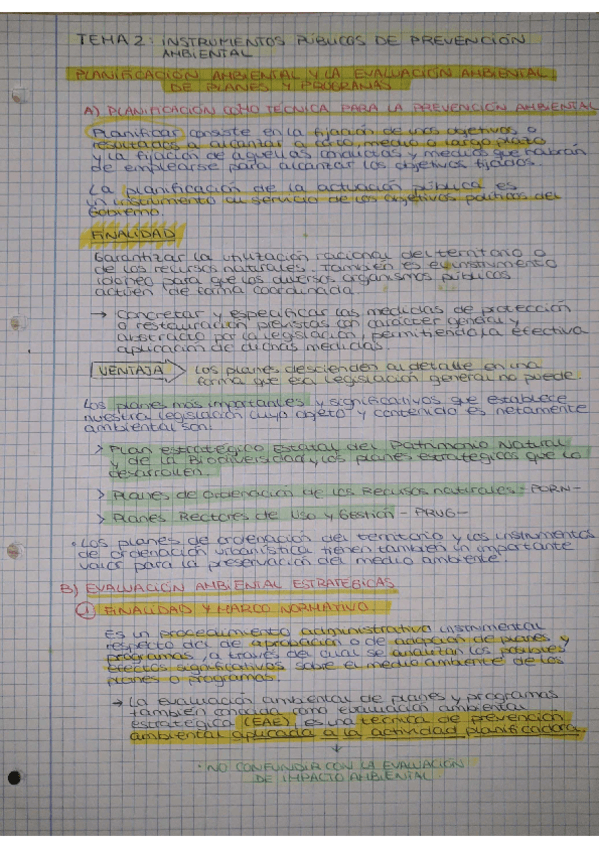 TEMA 2: INSTRUMENTOS PÚBLICOS DE PREVENCIÓN
AMBIENTAL
PLANIFICACIÓN AMBIENTAL Y LA EVALUACIÓN AMBIENTAL
DE PLANES Y PROGRAMAS
A) PLANIFICACIÓN COMO TÉCNICA PARA LA PREVENCIÓN AMBIENTAL
Planificar consiste en la fijación de unos objetivos o
resultados a alcanzar a corto, medio o largo plazo
y la fijación de aquellas conductas y medios que habrán
de emplearse para alcanzar los objetivos fijados.
La planificación de la actuación pública es
un instrumento al servicio de los objetivos políticos del
Gobierno.
FINALIDAD
Garantizar la utilización racional del territorio o
de los recursos naturales. También es el instrumento
idóneo para que los diversos organismos públicos
actúen de forma coordinada.
→ Concretar y especificar las medidas de protección
o restauración previstas con carácter general y
abstracto por la legislación, permitiendo la efectiva
aplicación de dichas medidas.
VENTAJA Los planes descienden al detalle en una
forma que esa legislación general no puede.
Los planes más importantes y significativos que establece
nuestra legislación cuyo objeto y contenido es netamente
ambiental son:
> Plan estratégico Estatal del Patrimonio Natural
y de la Biodiversidad y los planes estratégicos que lo
desarrollen.
> Planes de Ordenación de los Recursos naturales - PORN-
> Planes Rectores de Uso y Gestión - PRUG-
· Los planes de ordenación del territorio y los instrumentos
de ordenación urbanística tienen también un importante
valor para la preservación del medio ambiente.
B) EVALUACIÓN AMBIENTAL ESTRATÉGICAS
① FINALIDAD Y MARCO NORMATIVO
Es un procedimiento administrativo instrumental
respecto del de aprobación o de adopción de planes y
programas, a través del cual se analizan los posibles
efectos significativos sobre el medio ambiente de los
planes o programas.
→ La evaluación ambiental de planes y programas
también conocida como evaluación ambiental
estratégica (EAE), es una técnica de prevención
ambiental aplicada a la actividad planificadora.
↓
· NO CONFUNDIR CON LA EVALUACIÓN
DE IMPACTO AMBIENTAL